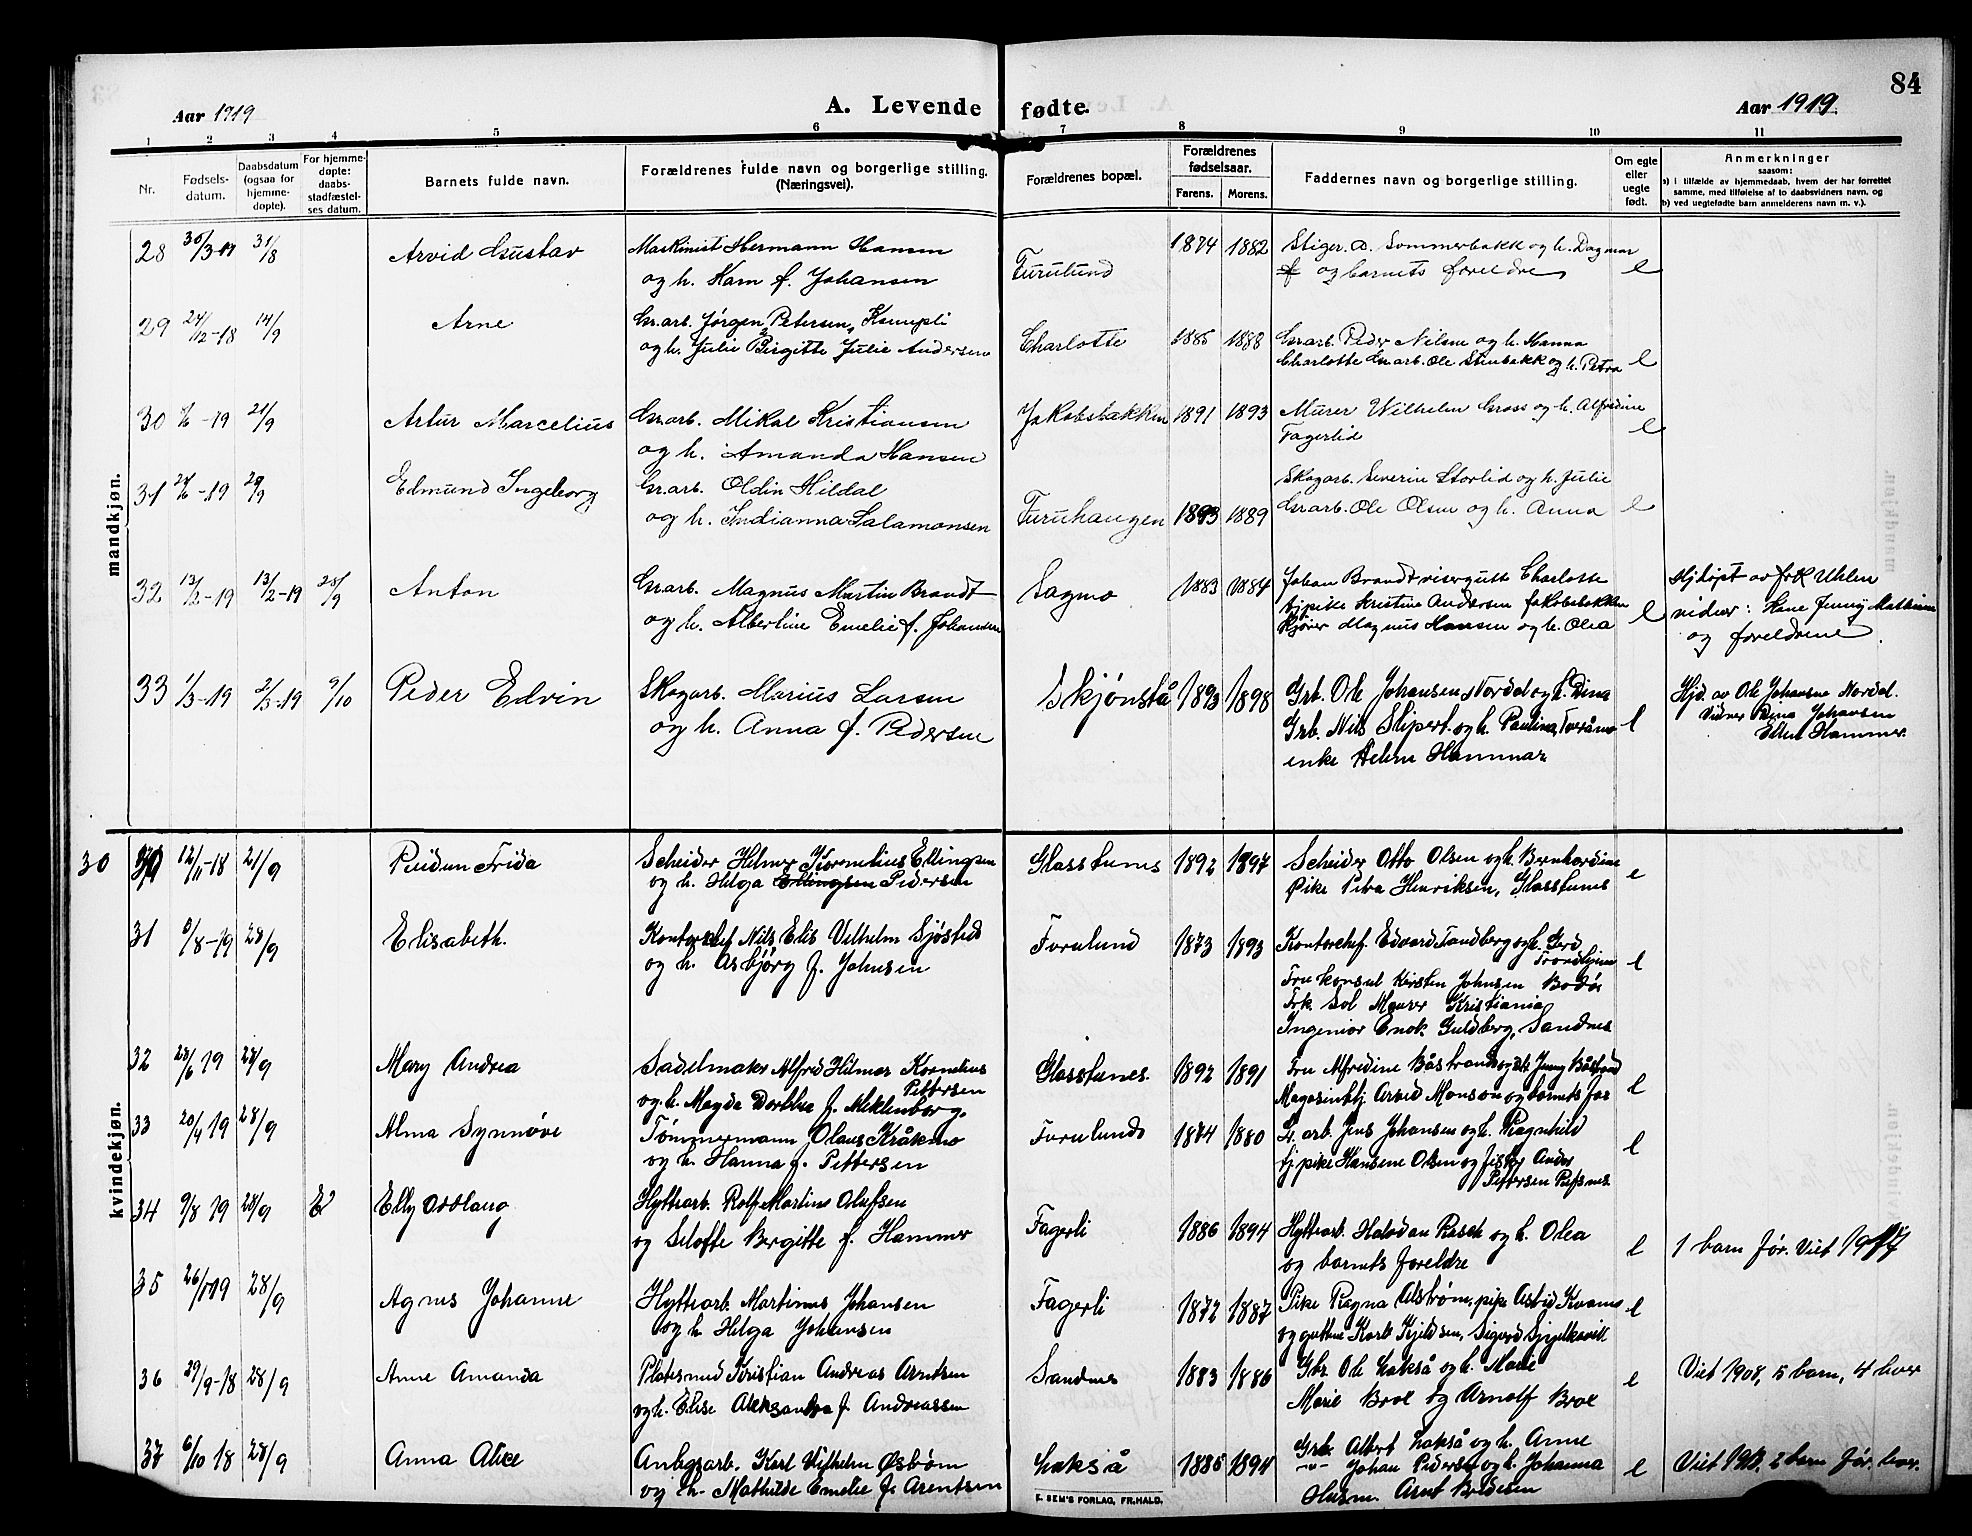 84
Aar 1919
A. Levende fødte.
Aar 1919
1 2 3 4 5 6 7 8 9 10 11
Nr.
Fødsels-
datum.
Daabsdatum
(ogsaa for
hjemme-
døpte).
For hjemme-
døpte:
daabs-
stadfæstel-
ses datum.
Barnets fulde navn.
Forældrenes fulde navn og borgerlige stilling.
(Næringsvei).
Forældrenes bopæl.
Forældrenes
fødselsaar.
Farens. Morens.
Faddernes navn og borgerlige stilling.
Om egte
eller
uegte
født.
Anmerkninger
saasom:
a) i tilfælde av hjemmedaab, hvem der har forrettet
samme, med tilføielse af to daabsvidners navn, og
b) ved uegtefødte barn anmelderens navn m. v.).
mandkjøn.
28 30/3-19 31/8 Arvid Gustav Maskinist Hermann Hansen Furulund 1874 1882 Stiger. A. Sommerbakk og h. Dagmar
og h. Ham f. Johansen og barnets foreldre e
29 24/12-18 14/9 Arne Gr.arb. Jørgen Petersen, Kempli Charlotte 1885 1888 Gr.arb. Peder Nilsen og h. Hanna
og h. Julie Birgitte Julie Andersen Charlotte Gr.arb. Ole Stenbakk og h. Petra e
30 -19 21/9 Artur Marcelius Gr.arb. Mikal Kristiansen Jakobsbakken 1891 1893 Murer Wilhelm Gross og h. Alfredine
og h. Amanda Hansen Fagerlid e
31 -19 Edmund Ingeborg Gr.arb. Oldin Hildal Furuhaugen 1893 1889 Skogarb. Severin Storlid og h. Julie
og h. Indianna Salamonsen Gr.arb. Ole Olsen og h. Anna e
32 13/2-19 13/2-19 28/9 Anton Gr.arb. Magnus Martin Brandt Sagmo 1883 1884 Johan Brandt visergutt Charlotte Hjdøpt av frk Uhlen
og h. Albertine Emelie f. Johansen tjpike Kristine Andersen Jakobsbakken e vidner: Hane Jenny Mathisen
Kjører Magnus Hansen og h. Olea og foreldrene.
33 1/3-19 2/3-19 9/10 Peder Edvin Skogarb. Marius Larsen Skjønstå 1893 1898 Grb. Ole Johansen Nordal og h. Dina Hjd. av Ole Johansen Nordal.
og h. Anna f. Pedersen Grb. Nils Skipert. og h. Paulina, Torråmo e Vidner Dina Johansen
enke Helene Hammar Ellen Hammer.
kvindekjøn.
30 12/11-18 21/9 Reidun Frida Scheider Hilmer Kornelius Ellingsen Glasstunes 1892 1897 Scheider Otto Olsen og h. Bernhardine
og h. Helga Ellingsen Pedersen Pike Petra Henriksen, Glasstunes e
31 /8-19 28/9 Elisabeth. Kontorchef Nils Elis Vilhelm Sjøsted Furulund 1873 1893 Kontorchef. Edvard Tandberg og h. Gerd
og h. Asbjørg f. Johnsen Trondhjem e
Fru konsul Kirsten Johnsen Bodø
Frk Sol Maurer Kristiania
Ingeniør Enok Guldberg, Sandnes
32 28/6 19 28/9 Mary Andrea Sadelmaker Alfred Hilmar Kornelius Glasstunes. 1892 1891 Fru Alfredine Båstrand og frk Jenny Båstrand
Pettersen
og h. Magda Dorthea f. Meklenborg. Magasinbtj Arvid Monsen og barnets far e
33 20/4 19 28/9 Alma Synnøve Tømmermann Olaus Kråkmo Furulund 1874 1880 Gr. arb. Jens Johansen og h. Ragnhild
og h. Hanna f. Pettersen tjpike Hansene Olsen og fisker Ander e
Pettersen
34 9/8 19 28/9 E Elly Oddlaug Hyttearb. Rolf Martins Olufsen Fagerli 1886 1894 Hyttearb Halvdan Rasch og h. Olea
og Seloffe Bergitte f. Hammer og barnets foreldre e 1 barn før. Viet 1917
35 28/9 Agnes Johanne Hyttearb. Martinus Johansen Fagerli 1872 1887 Pike Ragna Alstrøm, pike Astrid Kvamo e
og h Helga Johansen og guttene Karl Kjeldsen, Sigurd
36 29/9-18 28/9 Anne Amanda Platesmed Kristian Andreas Arntsen Sandnes 1883 1886 Gbr Ole Lakså og h. Marie Viet 1908, 5 barn, 4 lever
og h. Elise Aleksandra f. Andreassen Marie Brol og Arnolf Brol e
37 6/10 18 28/9 Anna Alice Anlegsarb. Karl Vilhelm Østbøm Lakså 1885 1894 Grb. Albert Lakså og h. Anne
og h. Mathilde Emelie f. Arentsen Johan Pedersen og h. Johanna e Viet 2 barn før. lever.
Husm. Arnt Bredesen
E. SEM'S FORLAG, FR.HALD.